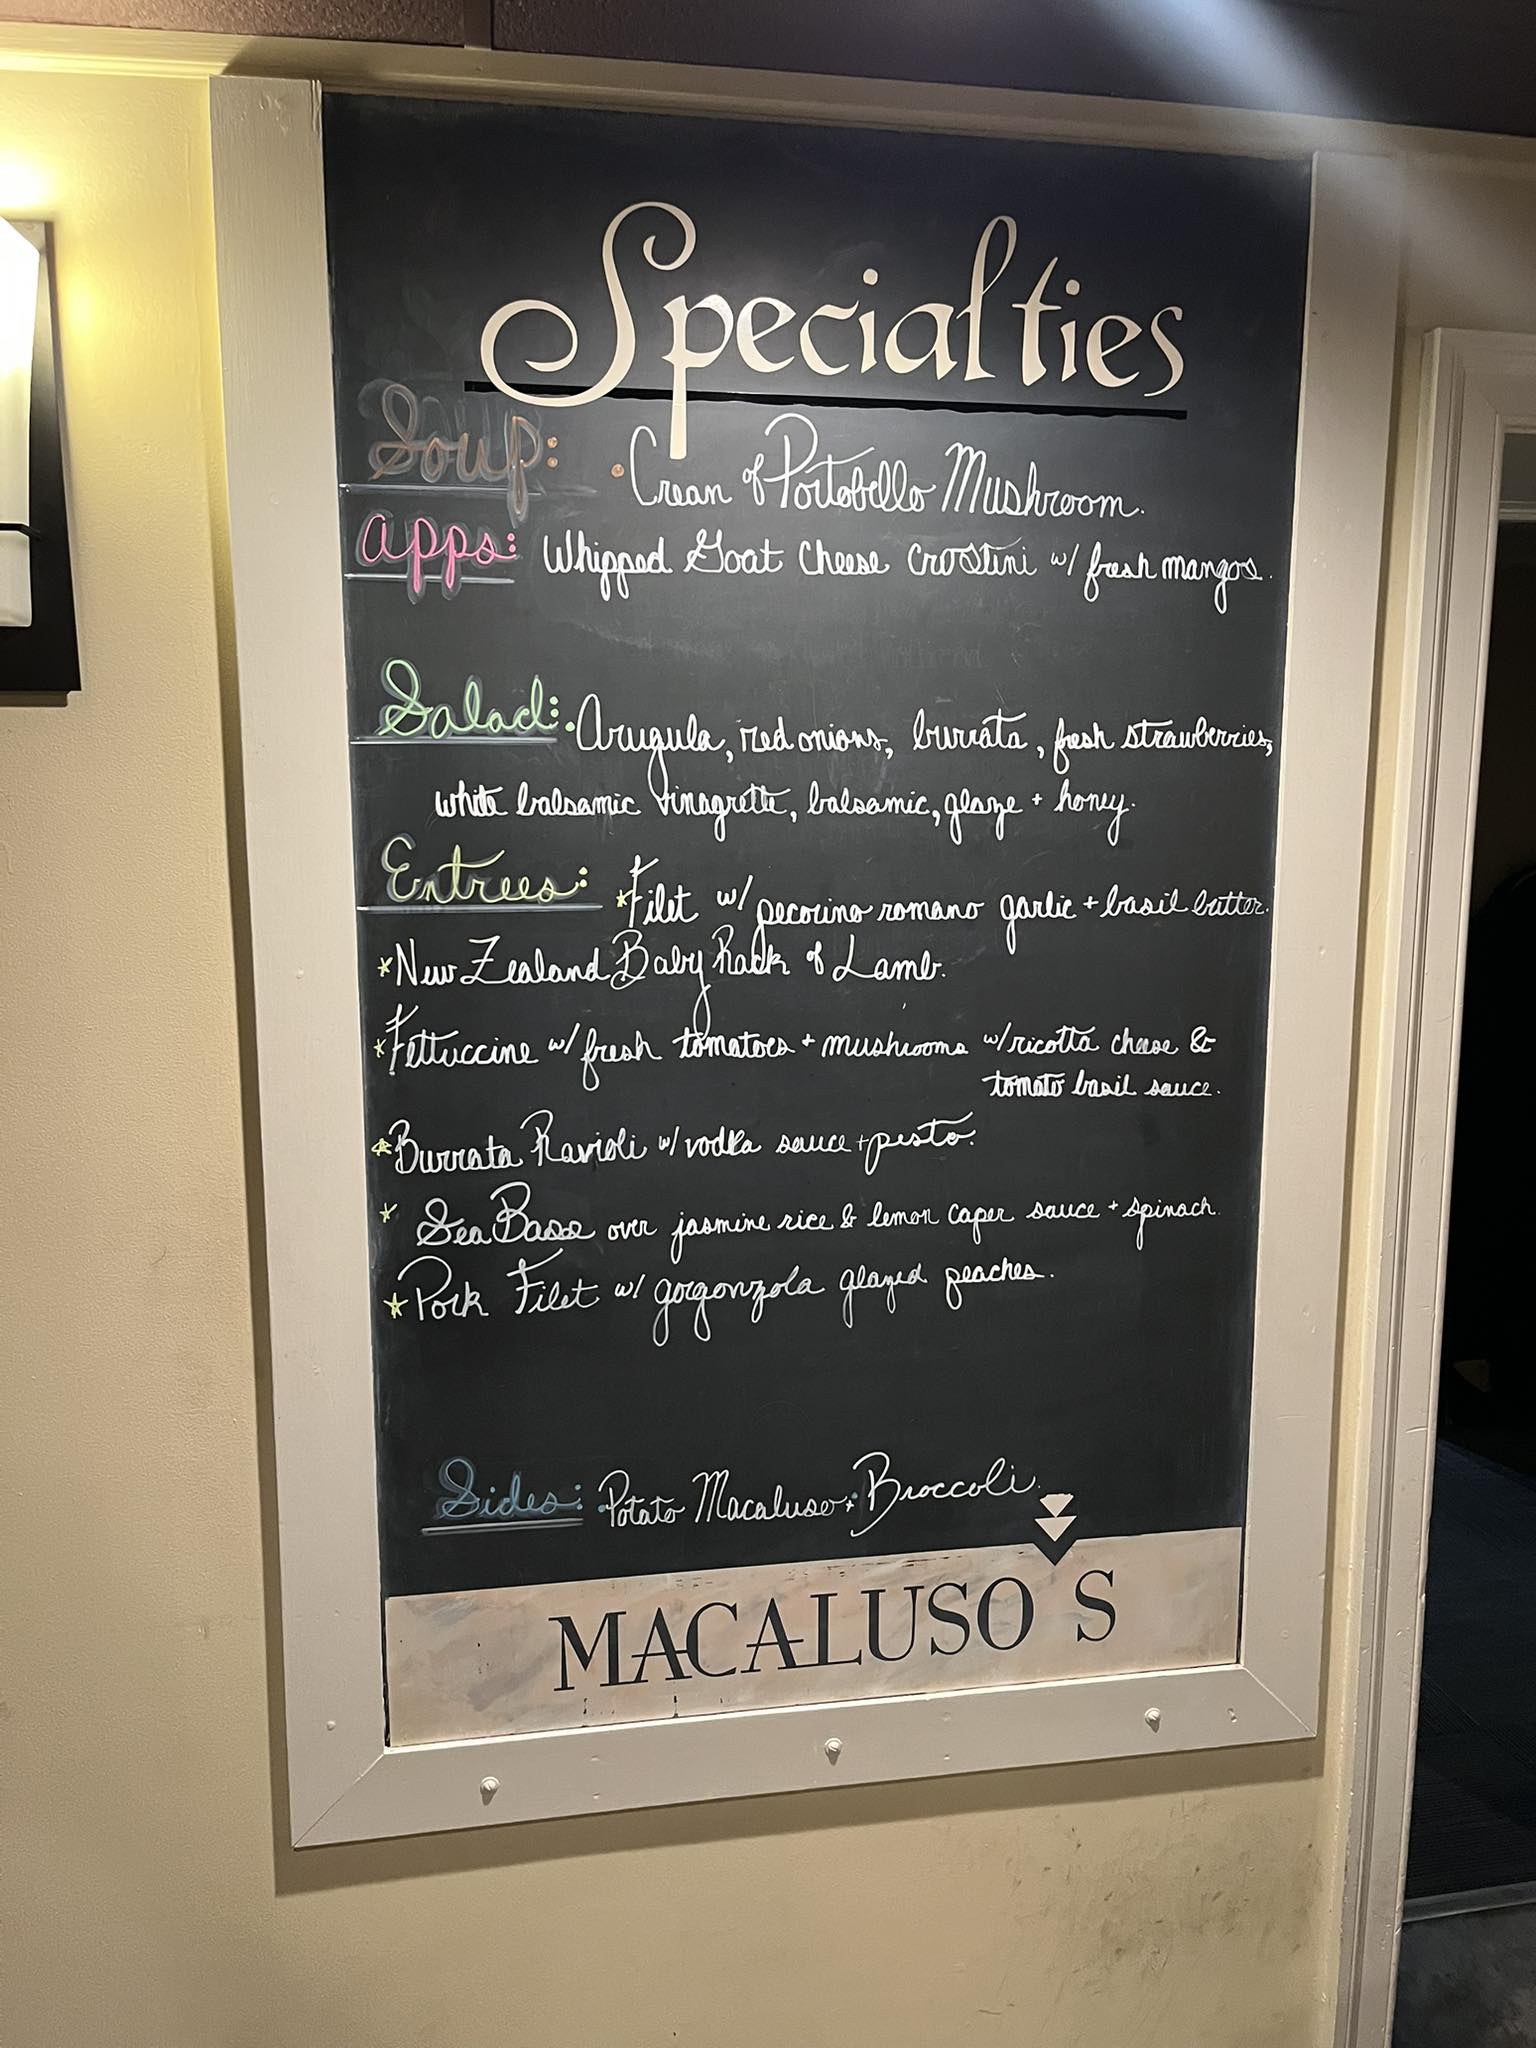 Specialties
Soup: • Cream of Portobello Mushroom.
apps: Whipped Goat Cheese Crostini w/ fresh mangos.
Salad: • Arugula, red onions, burrata, fresh strawberries,
white balsamic vinagrette, balsamic, glaze + honey.
Entrees: *Filet w/ pecorino romano garlic + basil butter.
*New Zealand Baby Rack of Lamb.
*Fettuccine w/ fresh tomatoes + mushrooms w/ ricotta cheese &
tomato basil sauce.
*Burrata Ravioli w/ vodka sauce + pesto.
* Sea Bass over jasmine rice & lemon caper sauce + spinach.
*Pork Filet w/ gorgonzola glazed peaches.
Sides: • Potato Macaluso + Broccoli.
MACALUSO S